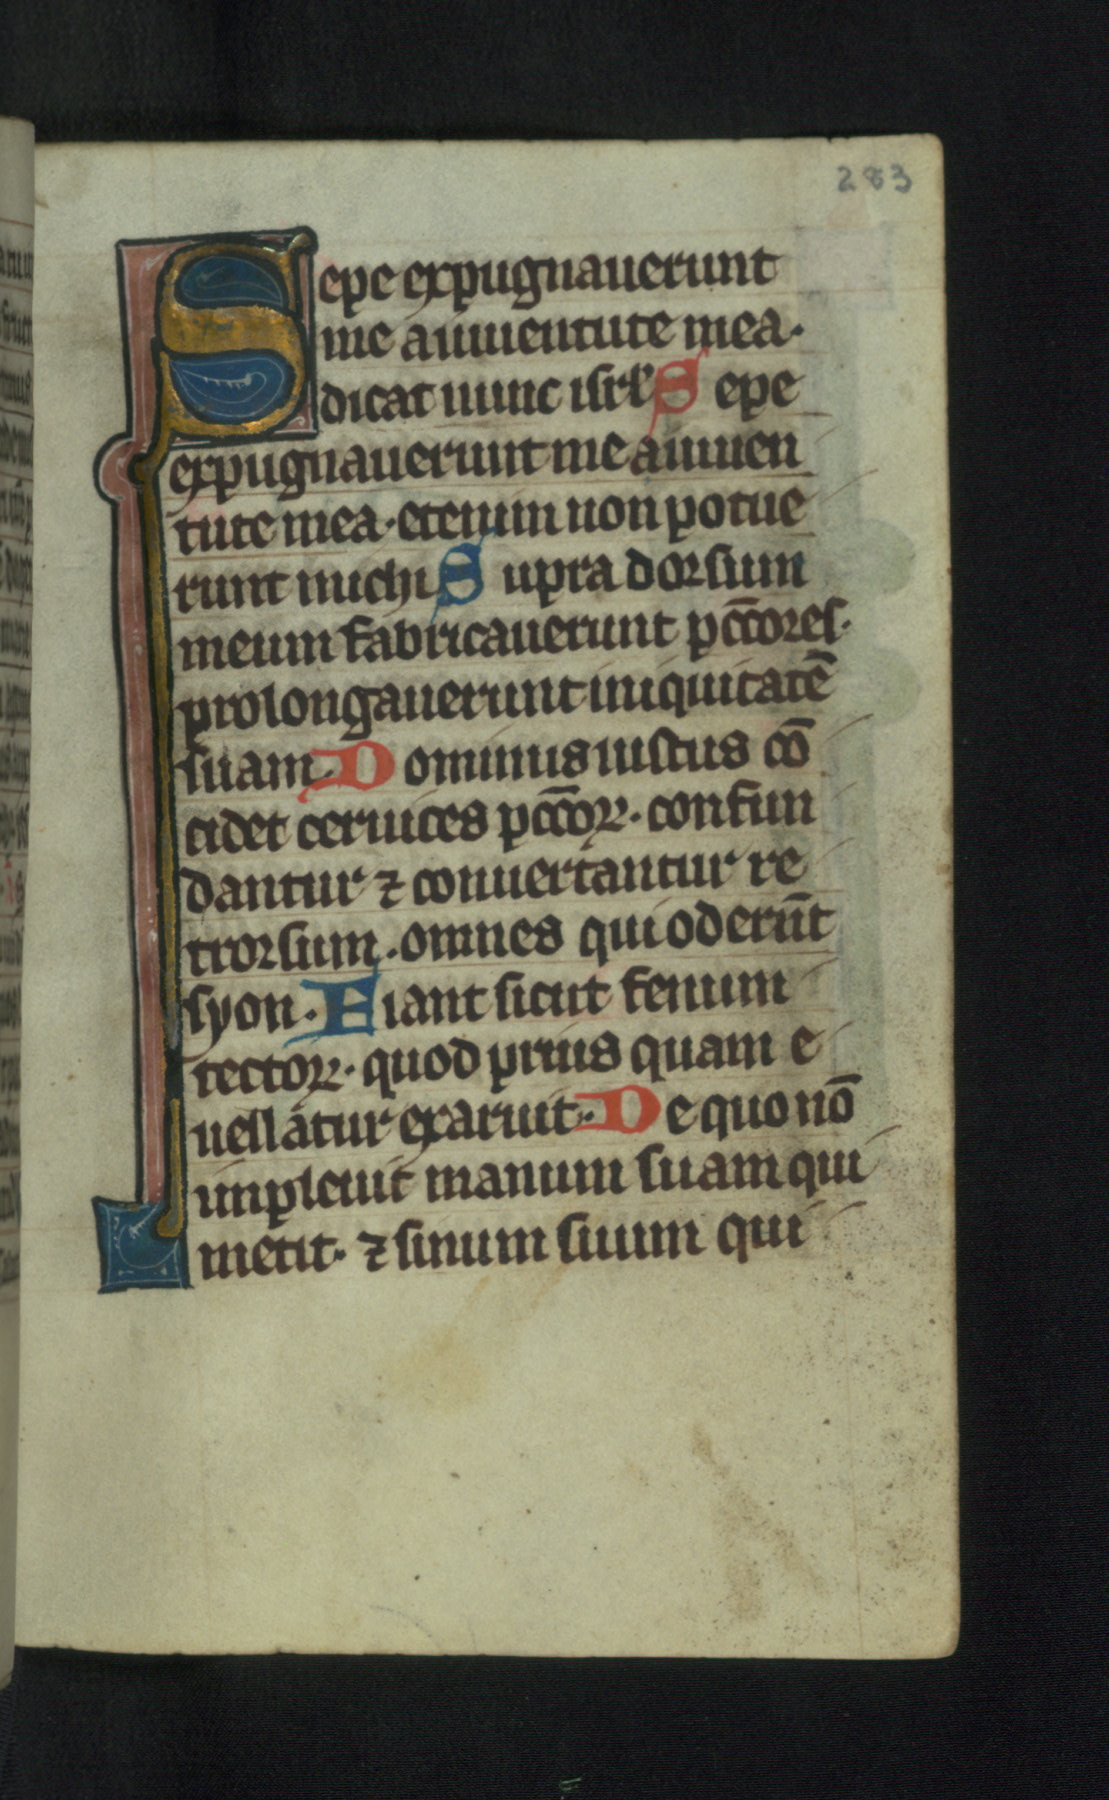 283
Sepe expugnauerunt
me a iuuentute mea.
dicat nunc isrl' Sepe
expugnauerunt me a iuuen
tute mea. etenim non potue
runt michi Supra dorsum
meum fabricauerunt pc̄c̄ores.
prolongauerunt iniquitatē
suam. Dominus iustus cō
cidet ceruices pc̄c̄oꝝ. confun
dantur ⁊ conuertantur re
trorsum. omnes qui oderūt
syon. Fiant sicut fenum
tectoꝝ. quod prius quam e
uellatur exaruit. De quo nō
impleuit manum suam qui
metit. ⁊ sinum suum qui